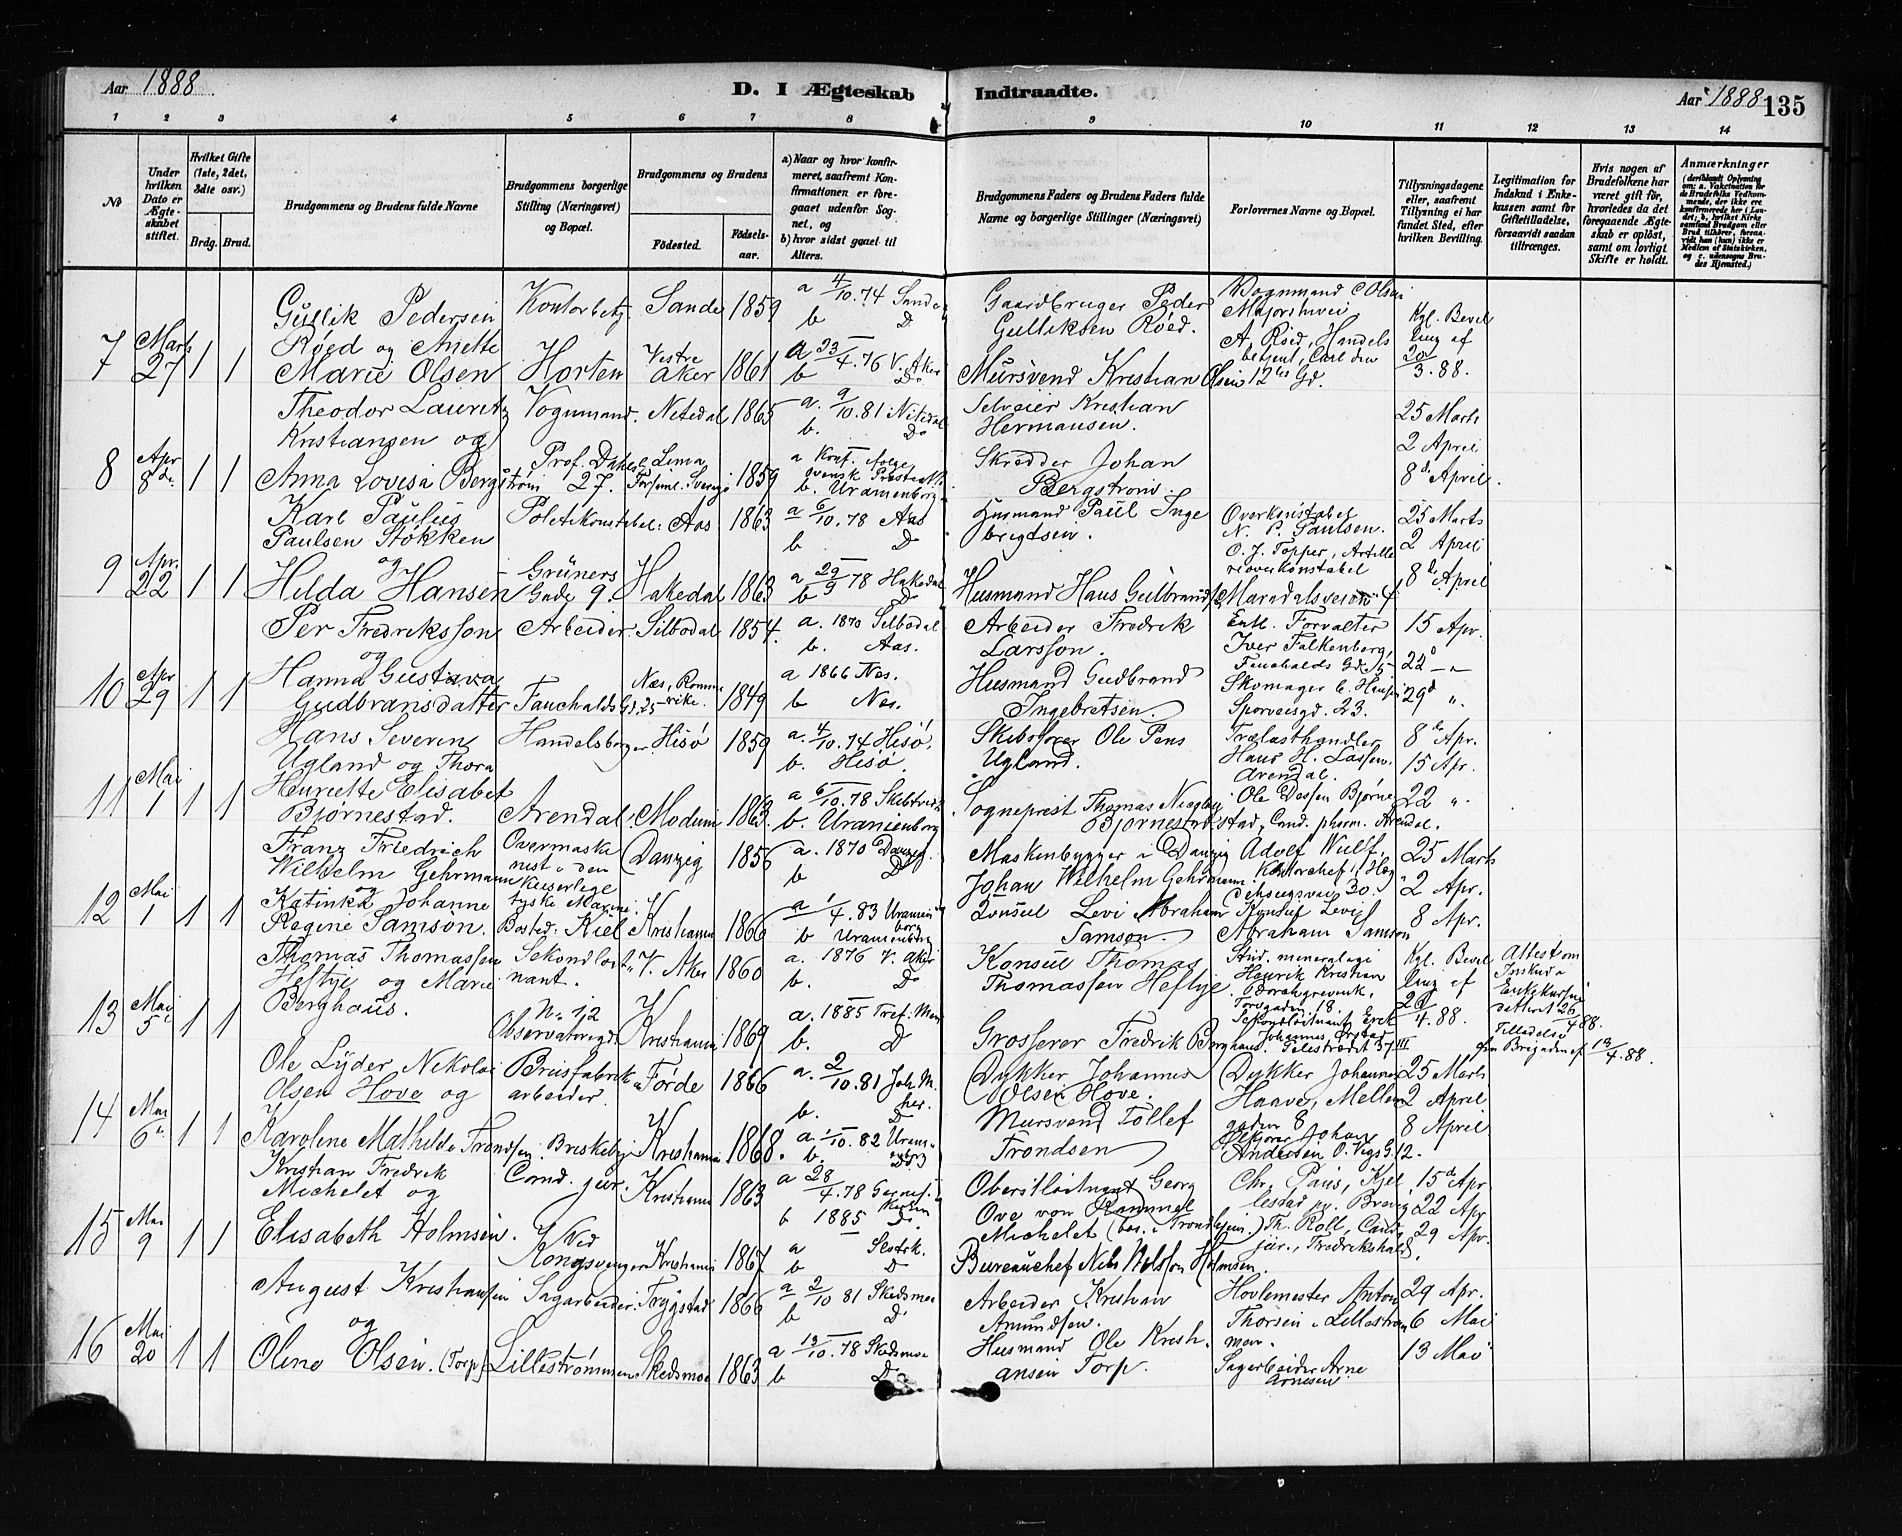 Aar 1888
D. I Ægteskab Indtraadte.
Aar 1888 135
1 2 3 4 5 6 7 8 9 10 11 12 13 14
№
Under hvilken Dato er Ægteskabet stiftet.
Hvilket Gifte (1ste, 2det, 3die osv.)
Brdg. Brud.
Brudgommens og Brudens fulde Navne
Brudgommens borgerlige Stilling (Næringsvei) og Bopæl.
Brudgommens og Brudens
Fødested. Fødselsaar.
a) Naar og hvor konfirmeret, saafremt Konfirmationen er foregaaet udenfor Sognet, og
b) hvor sidst gaaet til Alters.
Brudgommens Faders og Brudens Faders fulde Navne og borgerlige Stillinger (Næringsvei)
Forlovernes Navne og Bopæl.
Tillysningsdagene eller, saafremt Tillysning ei har fundet Sted, efter hvilken Bevilling.
Legitimation for Indskud i Enkekassen samt for Giftetilladelse, forsaavidt saadan tiltrænges.
Hvis nogen af Brudefolkene har været gift før, hvorledes da det foregaaende Ægteskab er opløst, samt om lovligt Skifte er holdt.
Anmærkninger
7 Marts 27 1 1
Gullik Pedersen Røed og Anette Marie Olsen
Kontorbetj. Horten
Sande 1859
Vestre Aker 1861
a 4/10.74 Sande
b Do
a 23/4.76 V. Aker
b Do
Gaardbruger Peder Gulliksen Röed.
Mursvend Kristian Olsen
Vognmand C Olsen
A. Røed, Handelsbetjent, Carl den 12tes Gd.
Kgl. Bevilling af 20/3.88.
8 Apr 8de 1 1
Theodor Lauritz Kristiansen og
Anna Lovisa Bergstrøm
Vognmand.
Prof. Dahls G. 27.
Nitedal 1865
Lima Sverige 1859
a. 9/10.81 Nitedal
b. Do
a Konf. ifølge svensk Præsteatt.
b. Uranienborg
Selveier Kristian Hermansen.
Skredder Johan Bergstrøm.
25 Marts
2 April
8de April.
9 Apr. 22 1 1
Karl Paulus Paulsen Stokken
og
Hilda Hansen
Politikonstabel.
Grüners Gade 9.
Aas 1863
Hakedal 1863
a 6/10.78 Aas
b Do
a 29/9 78 Hakedal
b Do
Husmand Paul Ingebrigtsen.
Husmand Hans Gulbrands.
Overkonstabel N. P. Paulsen.
O. J. Topper, Artillerioverkonstabel
Maridalsveien 4
25 Marts
2 April
8de April
10 Apr 29 1 1
Per Fredriksson
og
Hanna Gustava Gudbransdatter
Arbeider.
Fauchalds Gd. 25
Silbodal 1854.
Næs, Romerike. 1849
a. 1870 Silbodal
b. Aas.
a 1866 Nes.
b Nes.
Arbeider Fredrik Larsson.
Husmand Gudbrand Ingebretsen.
Entl. Forvalter Iver Falkenberg, Fauchalds Gd. 25
Skomager C. Hansen Sporveisgd. 23.
15 Apr.
22d — "
29d ".
11 Mai 1 1 1
Hans Severin Ugland og Thora Henriette Elisabet Bjørnestad.
Handelsborger
Arendal.
Hisö 1859
Modum 1863.
a. 4/10.74 Hisö.
b. Hisö.
a 6/10.78 Skibtvedt
b. Uranienborg
Skibsfører Ole Jens Ugland.
Sogneprest Thomas Bjørnestad
Trælasthandler Hans H. Lassen. Arendal.
Ole Bjørnestad, Cand. pharm. Arendal.
8de Apr.
15 Apr.
22 ".
12 Mai 1 1 1
Franz Friedrich Wilhelm Gehrmann
og
Katinka Johanne Regine Samson.
Overmaskinist i den Keiserlige tyske Marine.
Bosted: Kiel
Danzig 1856
Kristiania 1866
a. 1870 Danzig.
b Do
a 1/4.83 Uranienborg
b Uranienborg
Maskinbygger i Danzig Johan Wilhelm Gehrmann.
Konsul Levi Abraham Samson.
Adolf Wulf, Kontorchef, Hegdehaugsvei 30.
Konsul Levi Abraham Samson
25 Marts
2 Apr.
8 Apr.
13 Mai 5 1 1
Thomas Thomassen Heftye og Marie Berghaus.
Sekondløitnant.
N. 12 Observatoriegd.
V. Aker 1860
Kristiania 1869
a. 1876 V. Aker
b. Do
a. 1885 Tref. Men
b. Do
Konsul Thomas Thomassen Heftye
Grosserer Fredrik Berghaus.
Stud. mineralogi Henrik Kristian Borchgrevink, Torvgaden 8.
Sekondløitnant Erik Johannes Ørstad. Pilestrædet 37III
Kgl. Bevilling af 20/4.88.
Attest om Indskud i Enkekassen dateret 26/4 88.
Tilladelse fra Brigaden af 13/4.88.
14 Mai 6te 1 1
Ole Lyder Nikolai Olsen Hove og
Karoline Mathilde Trondsen.
Brusfabrikarbeider.
Briskeby
Førde 1866
Kristiania 1868.
a. 2/10.81 Joh. M. her.
b. Do
a. 1/10.82 Uranienborg
b. Do
Dykker Johannes Olsen Hove.
Mursvend Tollef Trondsen
Dykker Johannes Haave, Mellemgaden 8
Johan Andersen O. Vogts G. 12.
25 Marts
2 April
8 April
15 Mai 9 1 1
Kristian Fredrik Michelet og
Elisabeth Holmsen.
Cand. jur.
Kongsvinger
Kristiania 1863
Kristiania 1867
a 28/4.78 Garnis.kirken
b 1885 Do.
a Slotsk.
b Do
Oberstløitnant Georg Ove von Rømmel Michelet (bor. i Trondhjem.)
Bureauchef Nils Nilssøn Holmsen.
Chr. Paus, Kjellestad pr. Brevig.
Th. Roll, Cand. jur., Fredrikshald.
15de Apr
22 Apr
29 Apr.
16 Mai 20 1 1
August Kristiansen
og
Oline Olsen. (Torp)
Sagarbeider.
Lillestrømmen.
Trygstad 1866
Skedsmoe 1863
a 2/10 81 Skedsmoe
b Do
a 13/10.78 Skedsmoe
b Do
Arbeider Kristian Amundsen.
Husmand Ole Kristiansen Torp.
Høvlemester Anton Thorsen i Lillestrømmen.
Sagarbeider Arne Arnesen
29 Apr.
6 Mai
13 Mai